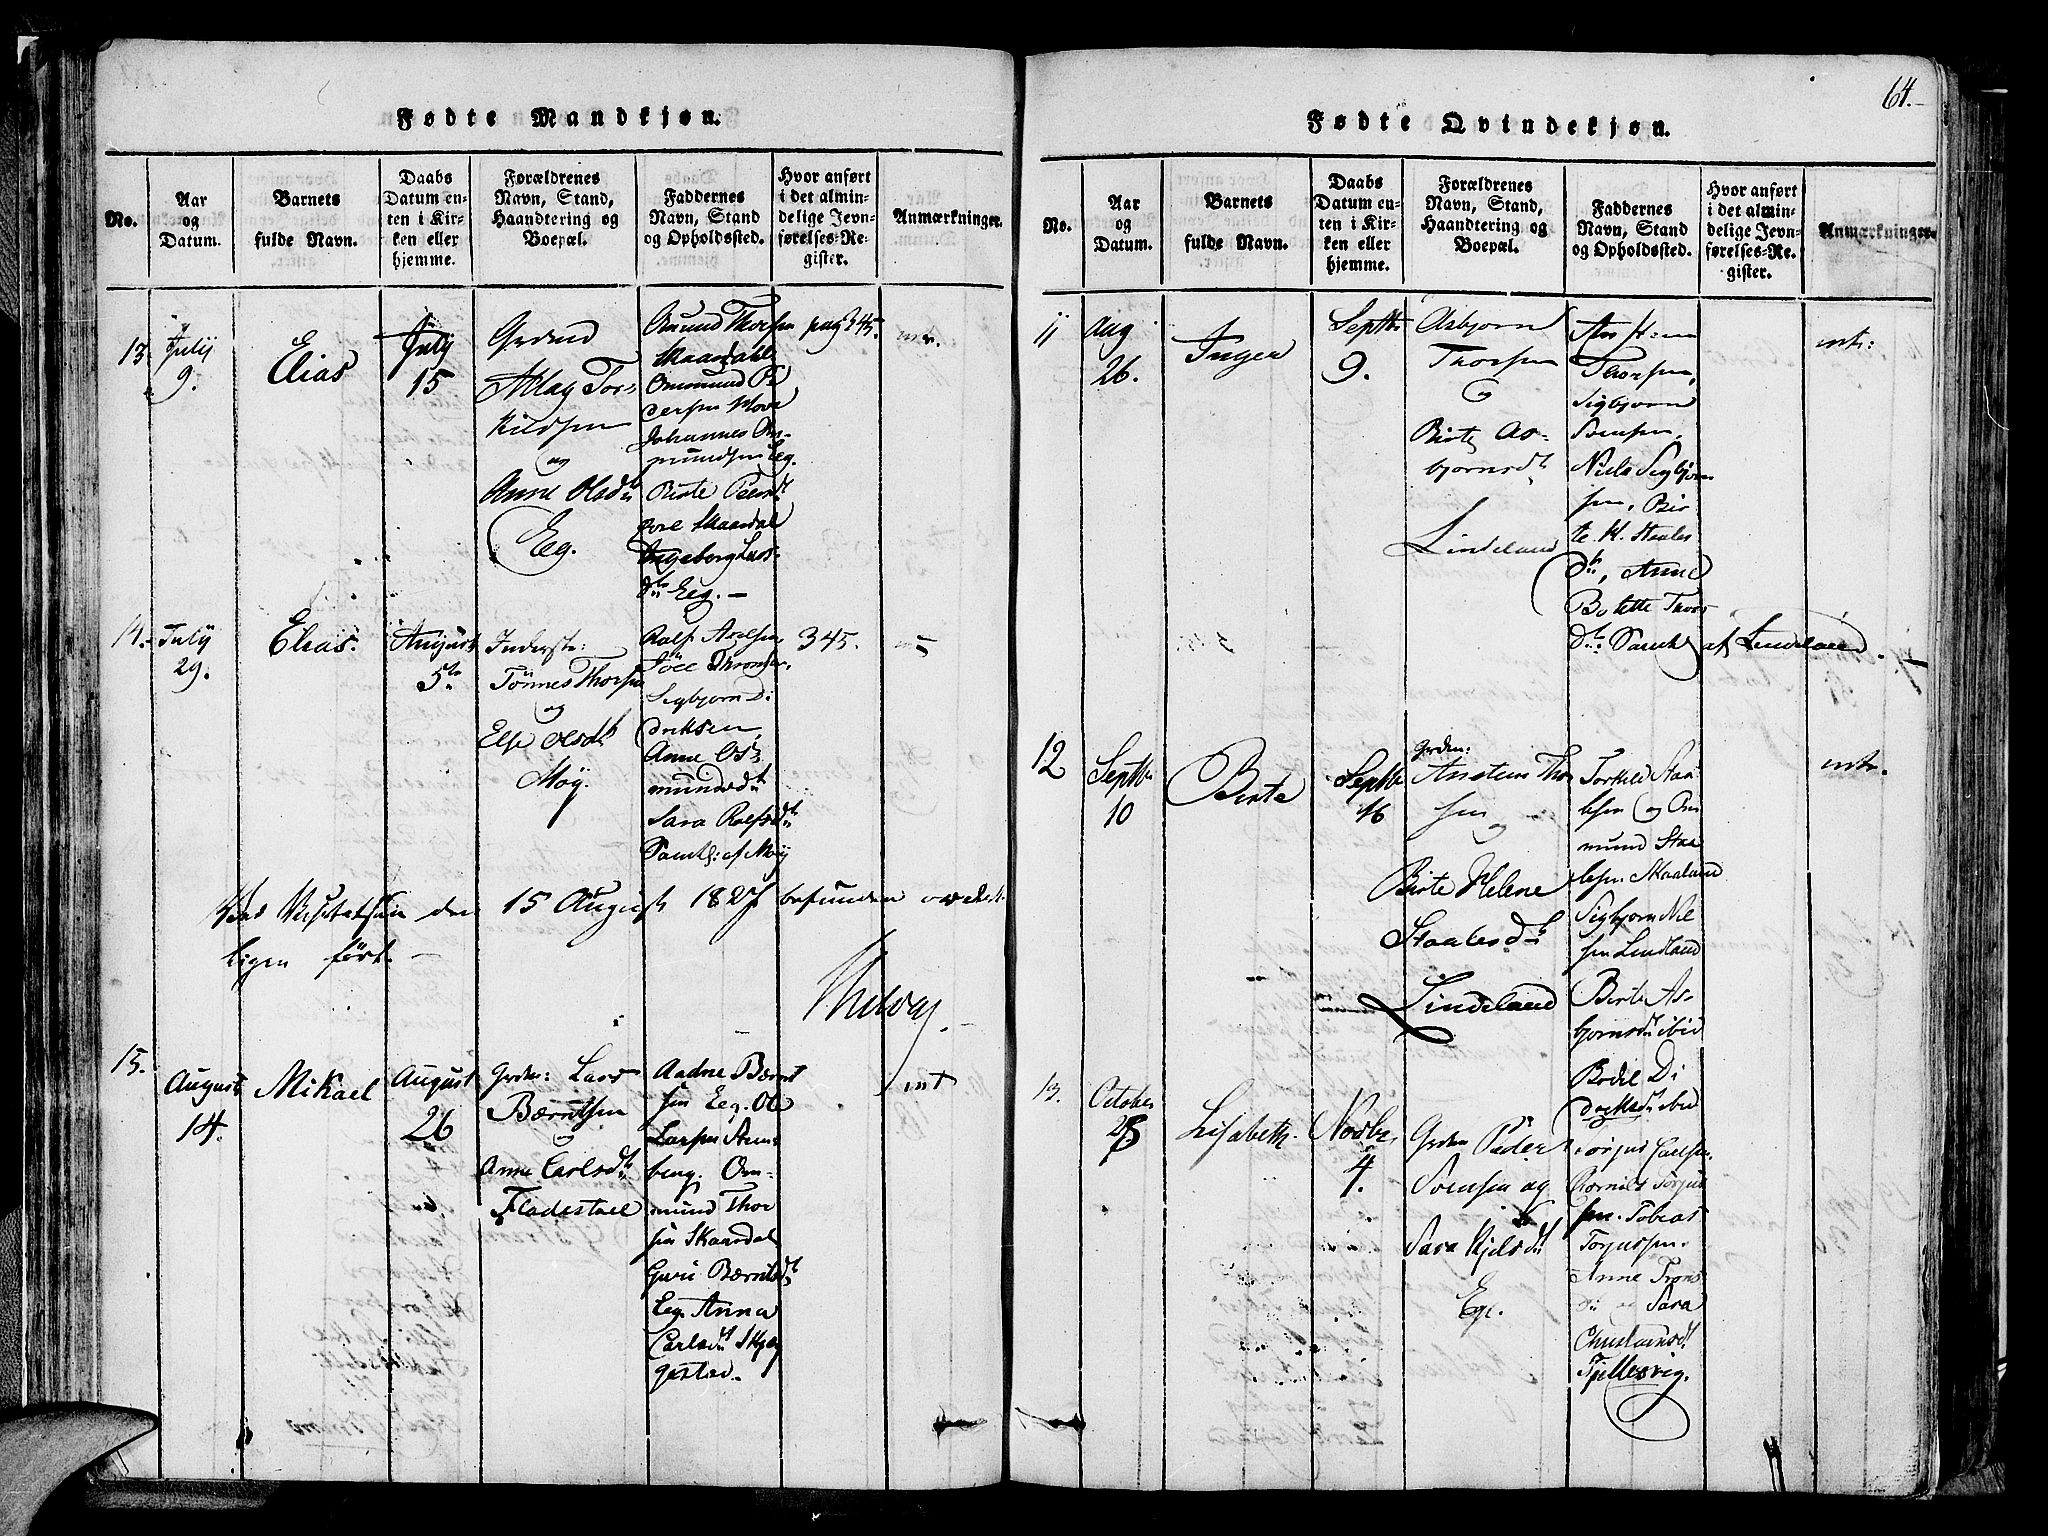 64.
Fødte Mandkjøn.
No.
Aar
og
Datum.
Barnets
fulde Navn.
Daabs
Datum en-
ten i Kir-
ken eller
hjemme.
Forældrenes
Navn, Stand,
Haandtering og
Boepæl.
Faddernes
Navn, Stand
og Opholdssted.
Hvor anført
i det almin-
delige Jevn-
førelses-Re-
gister.
Anmærkninger.
13
July
9.
Elias
July
15
Grdmd
Atlag Tor-
kildsen
og
Anne Olsdtr
Eeg.
Omund Thorsen
Skaardahl
Ommund Pe
dersen
Johannes Om-
mundsen Eeg.
Birte Peersdt
Skaardal
Ingeborg Lars-
dtr Eeg. —
pag 345.
14.
July
29.
Elias.
August
5te
Inderste:
Tönnes Thorsen
og
Else Olsdtr
Moÿ.
Rolf Axelsen,
Sigbjørn Di
driksen,
Anne Os-
mundsdtr
Sara Rolfsdtr
Samtl: af Moÿ
345.
Ved Visitatsen den 15 August 1827 befunden ordent-
ligen ført. —
15.
August
14.
Mikael
August
26
Grdm: Lars
Bærntsen
og
Anne Carlsdtr
Fladestad
Aadne Bærnt
sen Eeg. Ole
Larsen
berg. Om-
mund Thor
sen Skaardal
Guri Bærntsdt
Eeg. Anna
Carlsdtr Skjæ
gestad.
int
Fødte Qvindekjøn.
No.
Aar
og
Datum.
Barnets
fulde Navn.
Daabs
Datum en-
ten i Kir-
ken eller
hjemme.
Forældrenes
Navn, Stand,
Haandtering og
Boepæl.
Faddernes
Navn, Stand
og Opholdssted.
Hvor anført
i det almin-
delige Jevn-
førelses-Re-
gister.
Anmærkninger.
11
Aug
26.
Inger
Septbr
9.
Asbjørn
Thorsen
og
Birte As-
bjørnsdt
Lindeland
Thorsen,
Sigbjørn
Sørensen,
Niels Sigbjørn
sen, Bir-
te H. Staales
dtr, Anne
Bolette Thors
dtr: Samtl af Lindeland.
intr:
12
Septbr
10
Birte
Septbr
16
Grdm:
Anstein Thor
sen
og
Birte Helene
Staalesdtr
Lindeland
Torkild Staa
lesen og Om
mund Staa
lesen Skaaland
Sigbjørn Niel
sen Lindland
Birte As-
bjørnsdtr ibid
Bodil Di
driksdtr ibid
intr.
13.
October
28
Lisabeth.
Novbr
4.
Grdm Peder
Sørensen og
Sara Kjelsdt
Ege.
Torjus Carlsen.
Torjus
sen. Tobias
Torjussen.
Anne Trons
dtr og Sara
Christiansdt
Tjellesvig.